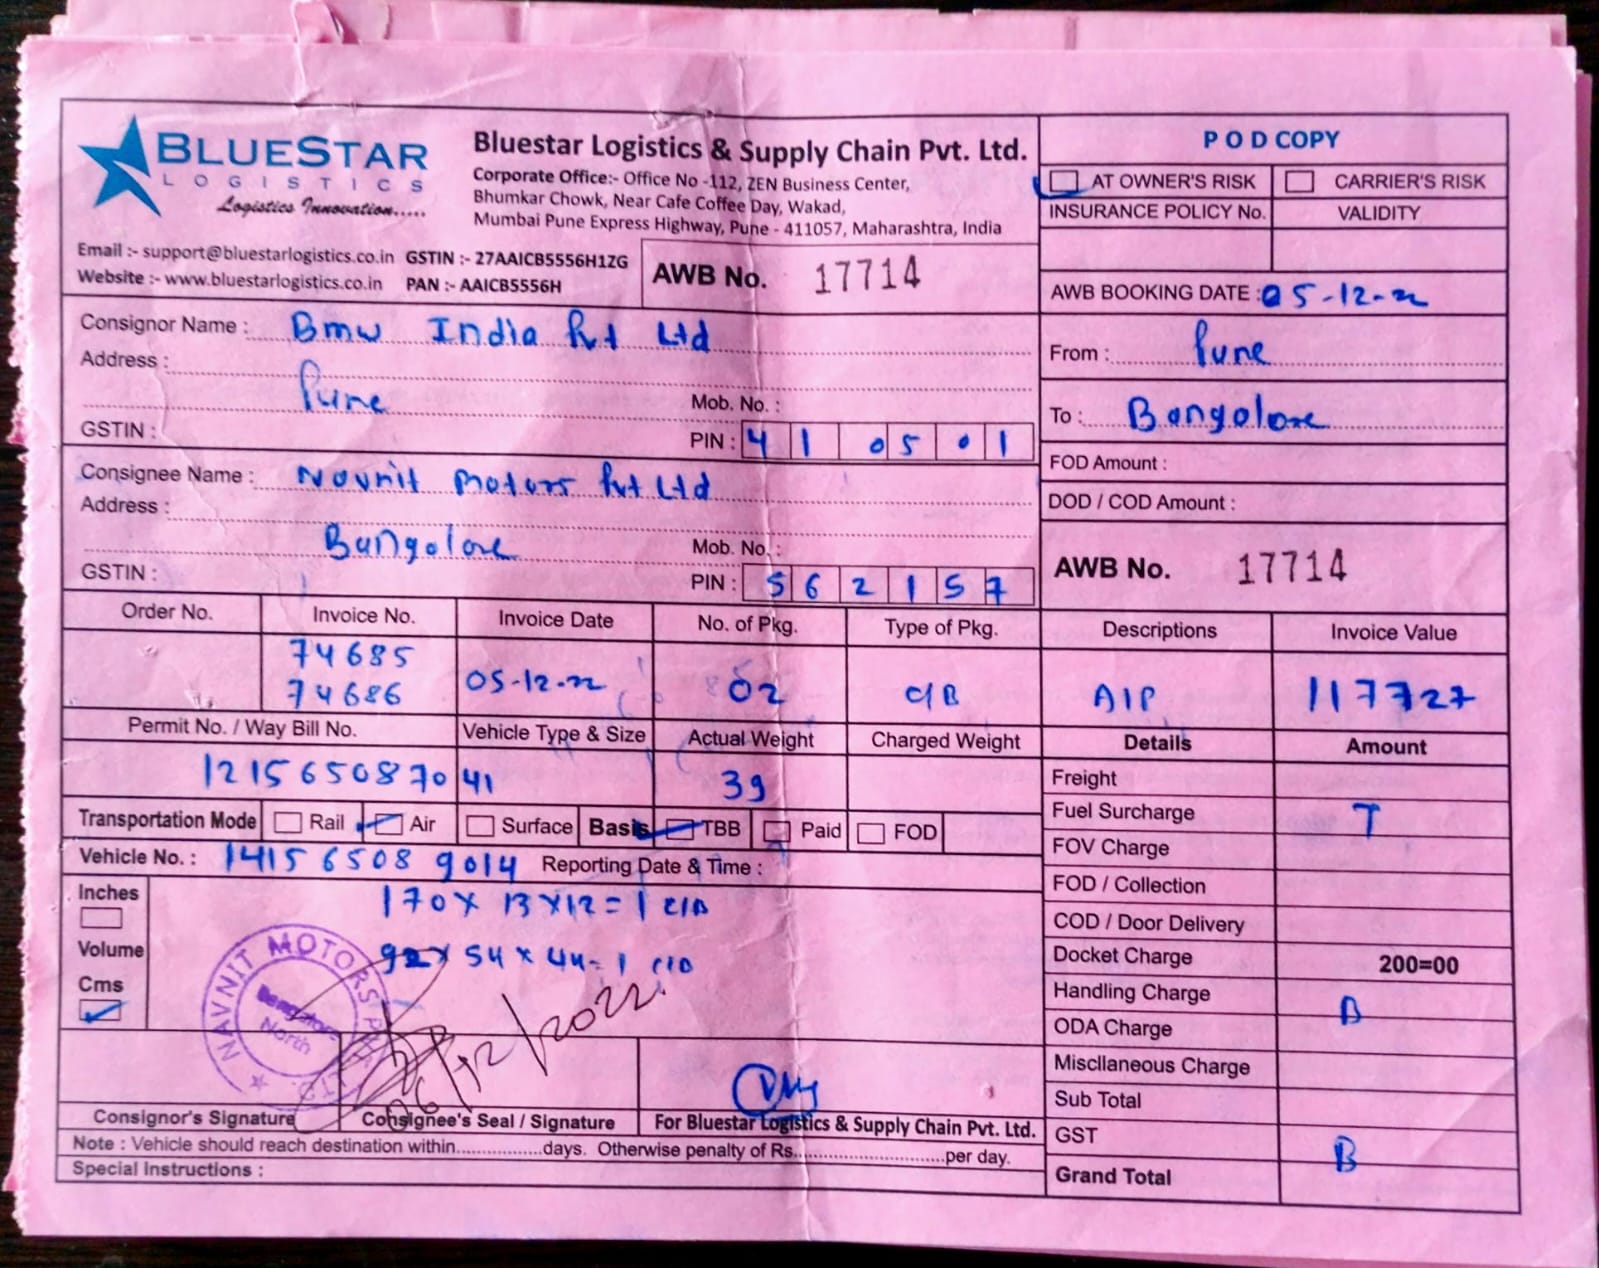 BLUESTAR
LOGISTICS
Logistics Innovation.....
Bluestar Logistics & Supply Chain Pvt. Ltd.
Corporate Office:- Office No -112, ZEN Business Center,
Bhumkar Chowk, Near Cafe Coffee Day, Wakad,
Mumbai Pune Express Highway, Pune - 411057, Maharashtra, India
Email :- support@bluestarlogistics.co.in GSTIN :- 27AAICB5556H1ZG
Website :- www.bluestarlogistics.co.in PAN :- AAICB5556H
AWB No. 17714
POD COPY
AT OWNER'S RISK CARRIER'S RISK
INSURANCE POLICY No. VALIDITY
AWB BOOKING DATE : 05-12-22
Consignor Name : Bmw India Pvt Ltd
Address :
Pune
Mob. No. :
GSTIN :
PIN : 410501
From : Pune
To : Bangalore
FOD Amount :
DOD / COD Amount :
AWB No. 17714
Consignee Name : Navnit Motors Pvt Ltd
Address :
Bangalore
Mob. No. :
GSTIN :
PIN : 562157
Order No. Invoice No. Invoice Date No. of Pkg. Type of Pkg. Descriptions Invoice Value
74685
74686 05-12-22 02 C/B A/P 117727
Permit No. / Way Bill No. Vehicle Type & Size Actual Weight Charged Weight
121565087041 39
Transportation Mode Rail Air Surface Basis TBB Paid FOD
Vehicle No. : 141565089014 Reporting Date & Time :
Inches
Volume
Cms
170 x 13 x 12 = 1 C/B
92 x 54 x 44 = 1 C/B
NAVNIT MOTORS
Bangalore
North
/12/2022
Consignor's Signature
Consignee's Seal / Signature
For Bluestar Logistics & Supply Chain Pvt. Ltd.
Note : Vehicle should reach destination within.................days. Otherwise penalty of Rs..............................per day.
Special Instructions :
Details Amount
Freight
Fuel Surcharge T
FOV Charge
FOD / Collection
COD / Door Delivery
Docket Charge 200=00
Handling Charge B
ODA Charge
Miscllaneous Charge
Sub Total
GST B
Grand Total